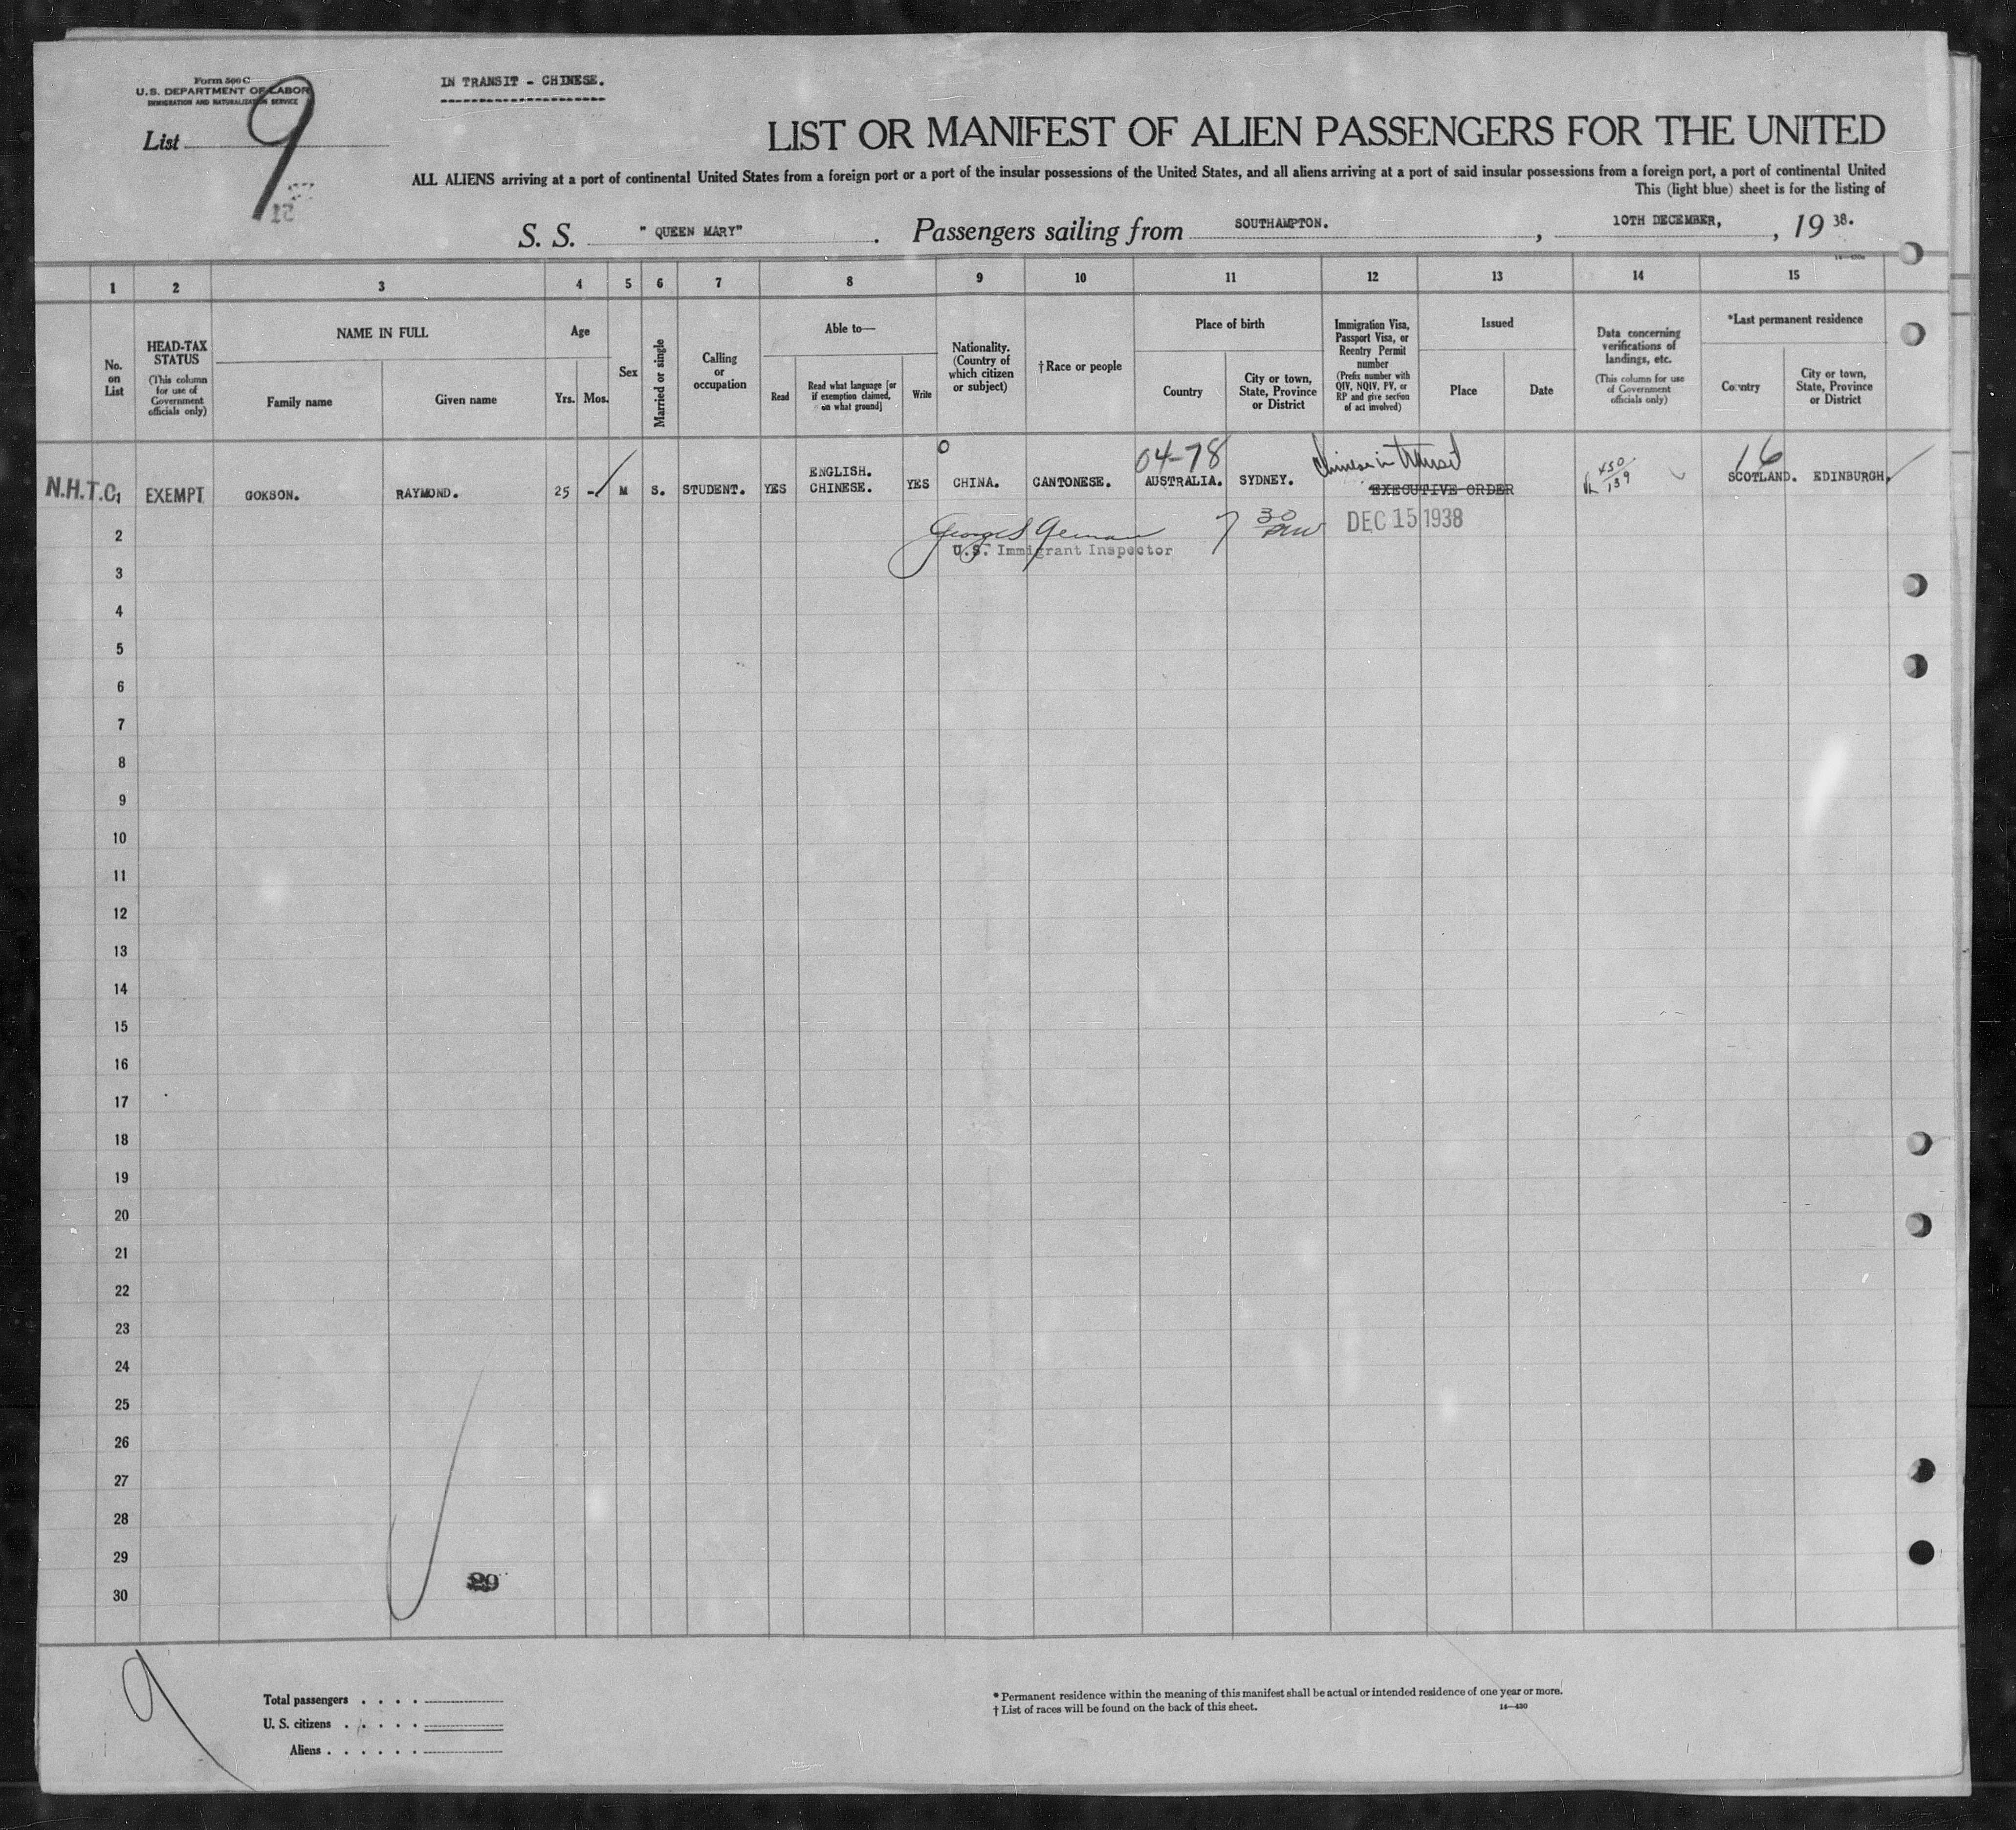 Form 566 C
U.S. DEPARTMENT OF LABOR
IMMIGRATION AND NATURALIZATION SERVICE
IN TRANSIT - CHINESE.
List 9
12
LIST OR MANIFEST OF ALIEN PASSENGERS FOR THE UNITED
ALL ALIENS arriving at a port of continental United States from a foreign port or a port of the insular possessions of the United States, and all aliens arriving at a port of said insular possessions from a foreign port, a port of continental United
This (light blue) sheet is for the listing of
S. S. " QUEEN MARY" . Passengers sailing from SOUTHAMPTON. , 10TH DECEMBER, , 19 38.
1 2 3 4 5 6 7 8 9 10 11 12 13 14 15
No. on List
HEAD-TAX STATUS
(This column for use of Government officials only)
NAME IN FULL
Family name
Given name
Age
Yrs. Mos.
Sex
Married or single
Calling or occupation
Able to—
Read
Read what language [or if exemption claimed, on what ground]
Write
Nationality. (Country of which citizen or subject)
†Race or people
Place of birth
Country
City or town, State, Province or District
Immigration Visa, Passport Visa, or Reentry Permit number
(Prefix number with QIV, NQIV, PV, or RP and give section of act involved)
Issued
Place
Date
Data concerning verifications of landings, etc.
(This column for use of Government officials only)
*Last permanent residence
Country
City or town, State, Province or District
0 04-78 Chinese in transit 16
N.H.T.C. 1 EXEMPT GOKSON. RAYMOND. 25 - M S. STUDENT. YES ENGLISH. CHINESE. YES CHINA. CANTONESE. AUSTRALIA. SYDNEY. EXECUTIVE ORDER 450/139 SCOTLAND. EDINBURGH.
7 30 DEC 15 1938
U.S. Immigrant Inspector
2
3
4
5
6
7
8
9
10
11
12
13
14
15
16
17
18
19
20
21
22
23
24
25
26
27
28
29
29
30
9
Total passengers . . . .
U. S. citizens . . . . .
Aliens . . . . . .
* Permanent residence within the meaning of this manifest shall be actual or intended residence of one year or more.
† List of races will be found on the back of this sheet.
14—430